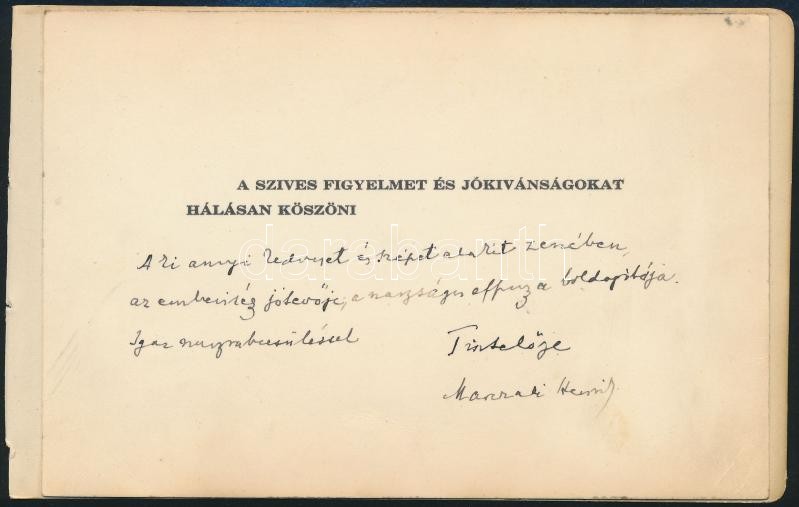 A SZIVES FIGYELMET ÉS JÓKIVÁNSÁGOKAT
HÁLÁSAN KÖSZÖNI
A ki annyi kedveset és szépet alakít zenében,
az emberiség jótevője, a boldogitója.
Igaz nagyrabecsüléssel Tisztelője
Marczali Henrik
darabanth